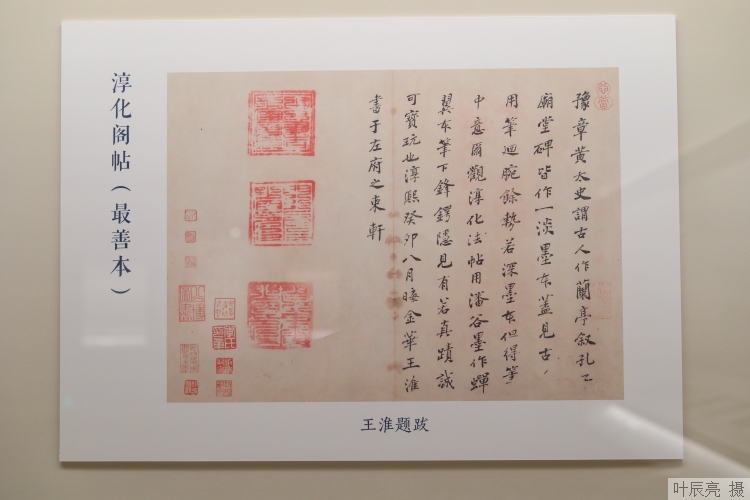 淳化阁帖（最善本）
豫章黄太史謂古人作蘭亭叙孔子
廟堂碑皆作一淡墨本蓋見古人
用筆廻腕餘勢若深墨本但得筆
中意爾觀淳化法帖用潘谷墨作蟬
翼本筆下鋒鍔隱見有若真蹟誠
可寶玩也淳熙癸卯八月晦金華王淮
書于左府之東軒
王淮题跋
叶辰亮 摄